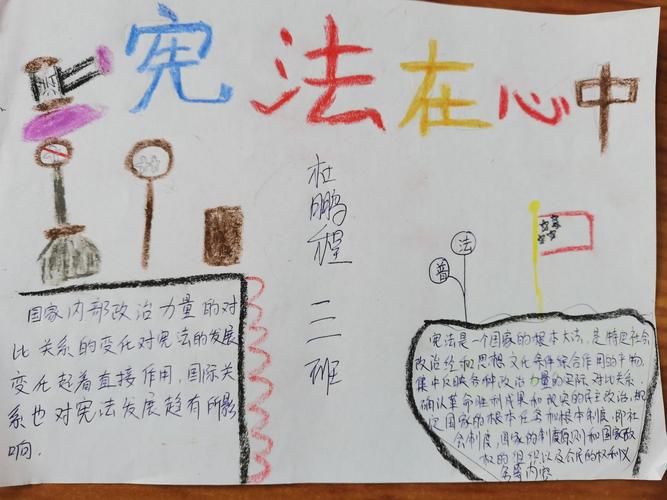 宪法在心中
杜鹏程
二二班
普法
国家内部政治力量的对
比关系的变化对宪法的发展
变化起着直接作用,国际关
系也对宪法发展趋有所影
响.
宪法是一个国家的根本大法,是特定社会
政治经和思想文化条件综合作用的产物,
集中反映各种政治力量的实际对比关系,
确认革命胜利成果和现实的民主政治,规
定国家的根本任务和根本制度,即社
会制度,国家的制度原则和国家政
权的组织以及公民的权利义
务等内容